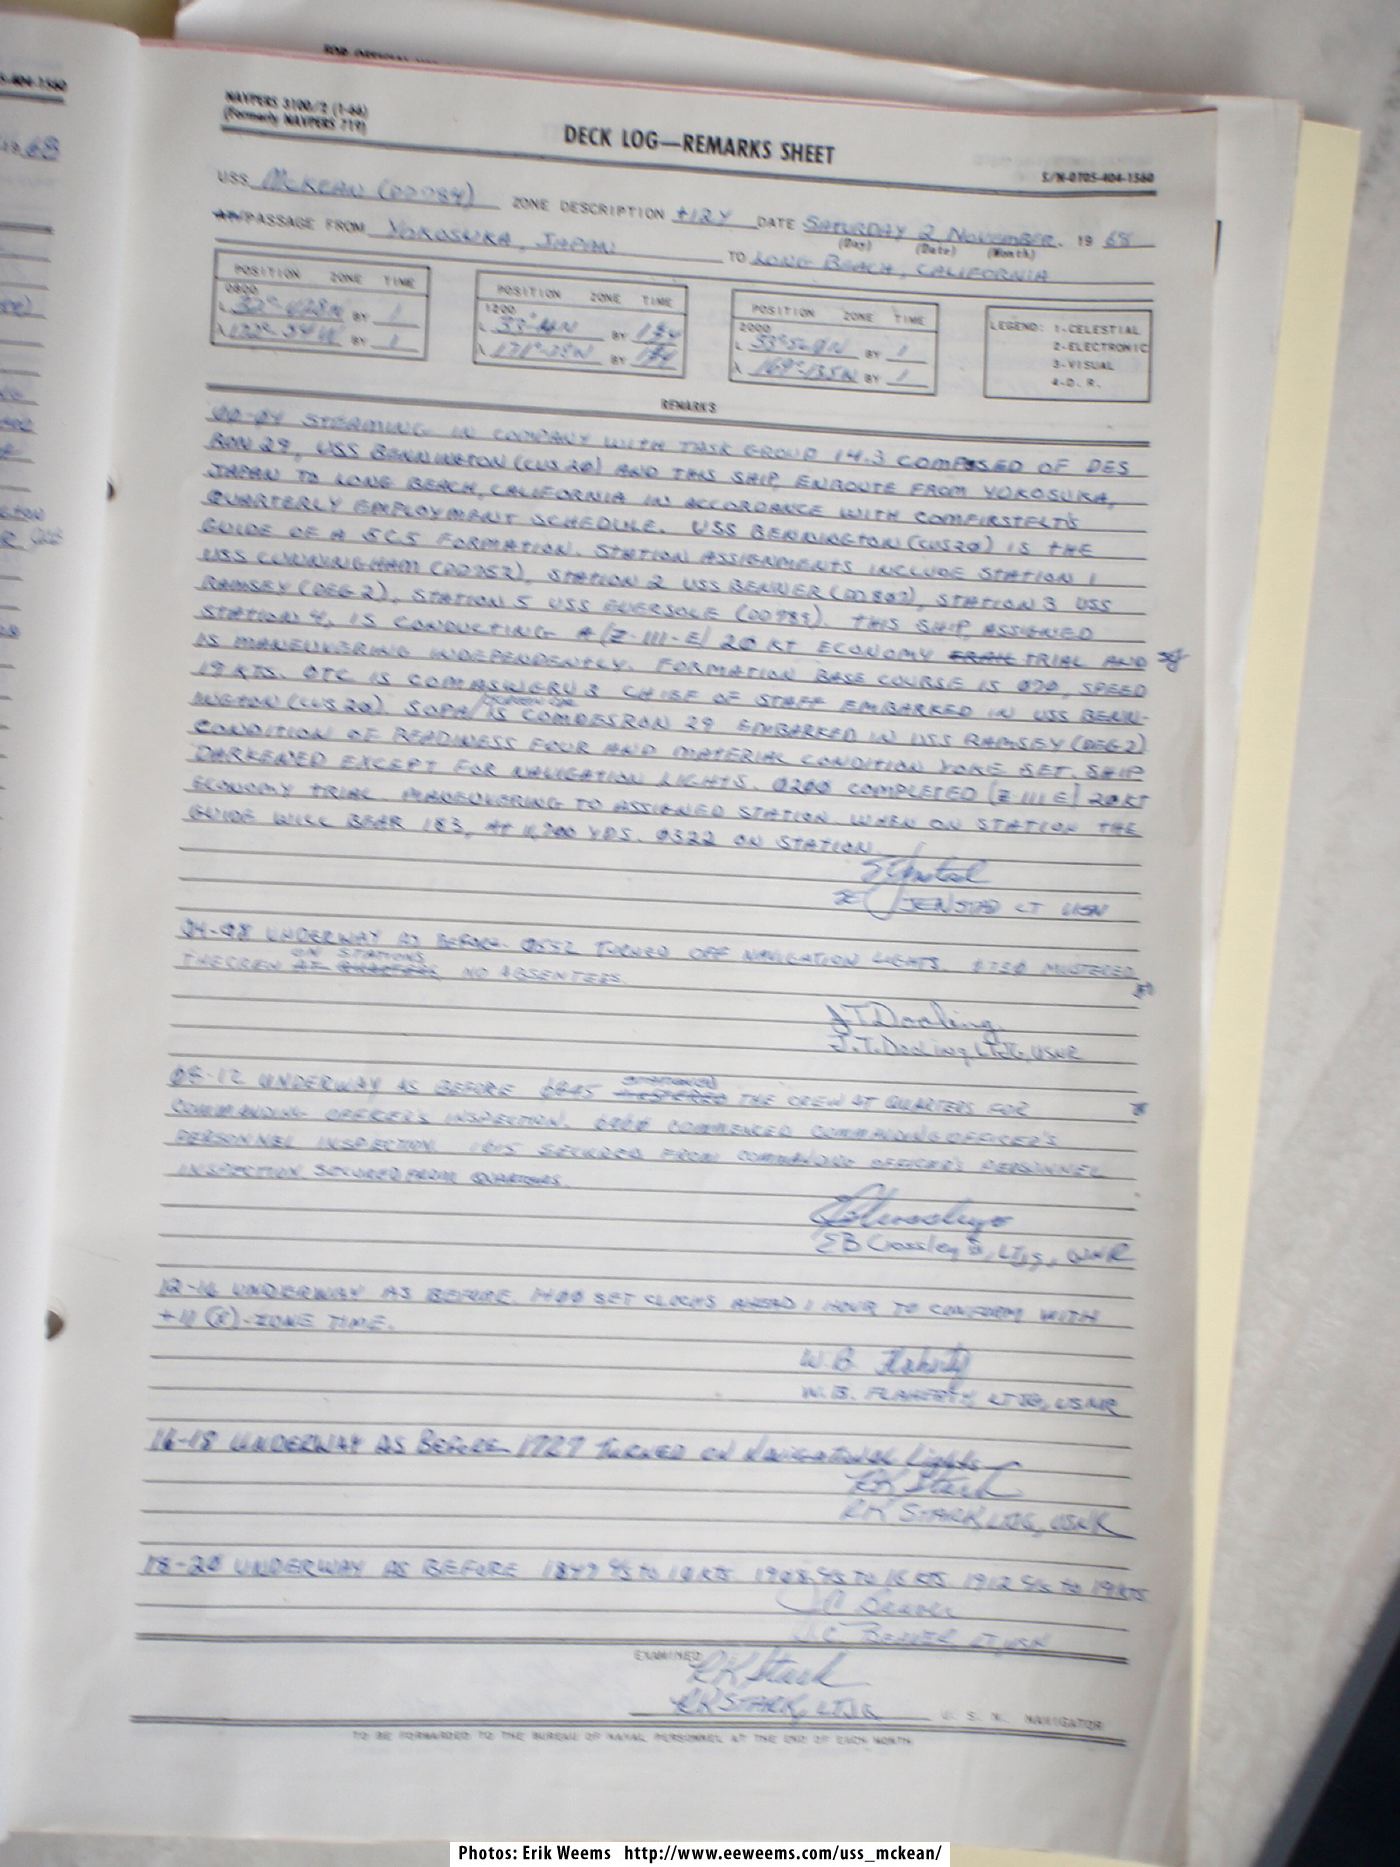 FOR OFFICIAL
S-404-1560
19 68
NAVPERS 3100/2 (1-66)
(Formerly NAVPERS 719)
DECK LOG—REMARKS SHEET
S/N-0105-404-1560
USS McKEAN (DD784) ZONE DESCRIPTION +12Y DATE SATURDAY 2 NOVEMBER 19 68
(Day) (Date) (Month)
AT/PASSAGE FROM YOKOSUKA, JAPAN TO LONG BEACH, CALIFORNIA
POSITION ZONE TIME
0800
L BY 1
λ BY 1
POSITION ZONE TIME
1200
L BY
λ BY
POSITION ZONE TIME
2000
L BY 1
λ BY 1
LEGEND: 1-CELESTIAL
2-ELECTRONIC
3-VISUAL
4-D. R.
REMARKS
00-04 STEAMING IN COMPANY WITH TASK GROUP 14.3 COMPOSED OF DES
RON 29, USS BENNINGTON (CVS 20) AND THIS SHIP, ENROUTE FROM YOKOSUKA,
JAPAN TO LONG BEACH, CALIFORNIA IN ACCORDANCE WITH COMFIRSTFLT'S
QUARTERLY EMPLOYMENT SCHEDULE. USS BENNINGTON (CVS20) IS THE
GUIDE OF A FORMATION. STATION ASSIGNMENTS INCLUDE STATION 1
USS CUNNINGHAM (DD752), STATION 2 USS BENNER (DD807), STATION 3 USS
RAMSEY (DEG 2), STATION 5 USS EVERSOLE (DD789). THIS SHIP, ASSIGNED
STATION 4, IS CONDUCTING A (Z-111-E) 20 KT ECONOMY TRIAL AND
IS MANEUVERING INDEPENDENTLY. FORMATION BASE COURSE IS 070, SPEED
19 KTS. OTC IS COMASWGRU 3 CHIEF OF STAFF EMBARKED IN USS BENN-
INGTON (CVS 20). SOPA IS COMDESRON 29 EMBARKED IN USS RAMSEY (DEG2)
CONDITION OF READINESS FOUR AND MATERIAL CONDITION YOKE SET. SHIP
DARKENED EXCEPT FOR NAVIGATION LIGHTS. 0200 COMPLETED (Z-111 E) 20 KT
ECONOMY TRIAL. MANEUVERING TO ASSIGNED STATION WHEN ON STATION THE
GUIDE WILL BEAR 183, AT YDS. 0322 ON STATION.
JENSTAD LT USN
04-08 UNDERWAY AS BEFORE. 0552 TURNED OFF NAVIGATION LIGHTS. 0750 MUSTERED
THE CREW ON STATIONS AT QUARTERS, NO ABSENTEES.
J T Dorling
J. T. Dorling LTJG, USNR
08-12 UNDERWAY AS BEFORE 0845 STATIONED MUSTERED THE CREW AT QUARTERS FOR
COMMANDING OFFICER'S INSPECTION. 0900 COMMENCED COMMANDING OFFICER'S
PERSONNEL INSPECTION. 1015 SECURED FROM COMMANDING OFFICER'S PERSONNEL
INSPECTION. SECURED FROM QUARTERS.
EB Crossley, LTJG, USNR
12-16 UNDERWAY AS BEFORE. 1400 SET CLOCKS AHEAD 1 HOUR TO CONFORM WITH
+11 (X)-ZONE TIME.
W. B. Flaherty
W. B. FLAHERTY, LTJG, USNR
16-18 UNDERWAY AS BEFORE 1727 TURNED ON Navigational Lights
RK Stark
RK STARK, LTJG, USNR
18-20 UNDERWAY AS BEFORE 1847 C/S to 10 KTS 1908 C/S TO 16 KTS 1912 C/S to 19 KTS
J C Beaver
J. C. BEAVER LT, USN
EXAMINED
RK Stark
RK STARK, LTJG U. S. N. NAVIGATOR
TO BE FORWARDED TO THE BUREAU OF NAVAL PERSONNEL AT THE END OF EACH MONTH
Photos: Erik Weems http://www.eeweems.com/uss_mckean/